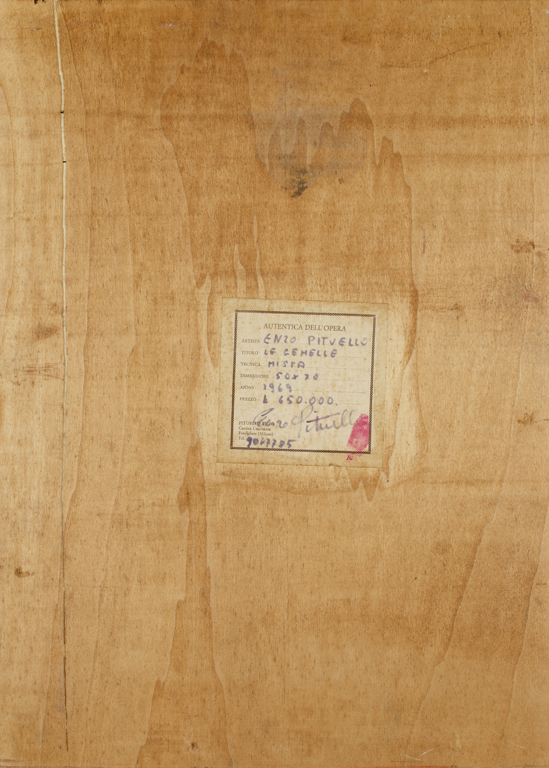 AUTENTICA DELL'OPERA
ARTISTA ENZO PITUELLO
TITOLO LE GEMELLE
TECNICA MISTA
DIMENSIONE 50x70
ANNO 1969
PREZZO £ 650.000.
Enzo Pituello